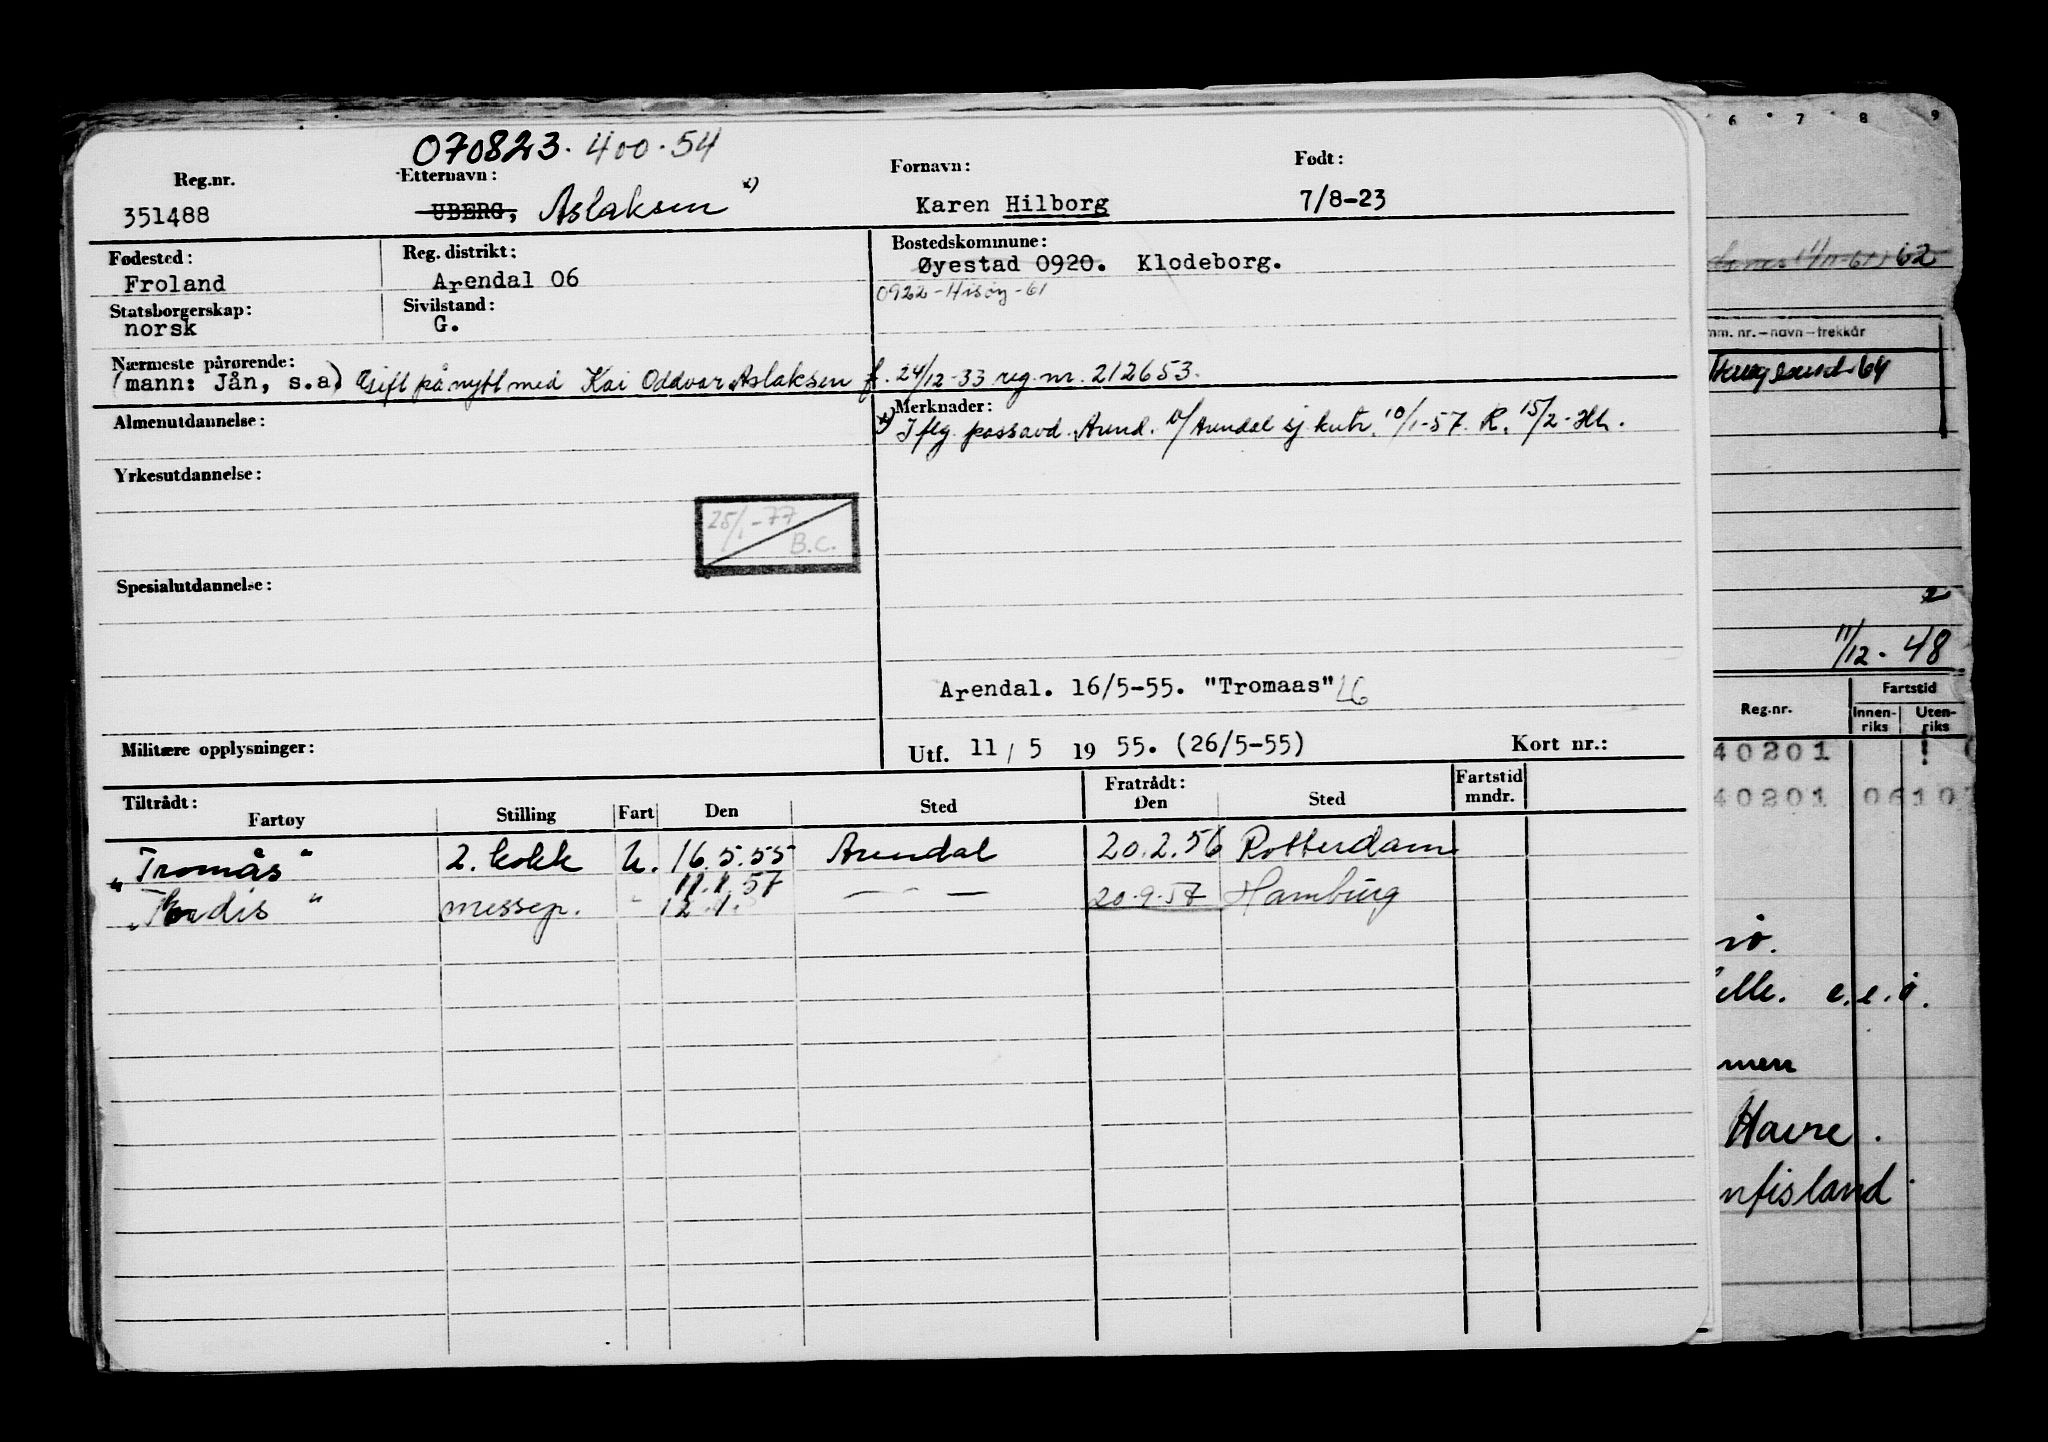 070823. 400.54
Reg.nr. Etternavn: Fornavn: Født:
351488 UBERG, Aslaksen x) Karen Hilborg 7/8-23
Fødested: Reg. distrikt: Bostedskommune:
Froland Arendal 06 Øyestad 0920. Klodeborg.
Statsborgerskap: Sivilstand: 0922-Hisøy-61
norsk G.
Nærmeste pårørende:
(mann: Jån, s.a) Gift på nytt med Kai Oddvar Aslaksen f. 24/12-33 reg.nr. 212653.
Almenutdannelse: Merknader:
x) Iflg. passavd. Arend. Arendal sj.kntr. 10/1-57. R. 15/2-
Yrkesutdannelse:
25/1-77
B.C.
Spesialutdannelse:
Arendal. 16/5-55. "Tromaas"
Militære opplysninger: Utf. 11/5 1955. (26/5-55) Kort nr.:
Tiltrådt: Fratrådt: Fartstid
Fartøy Stilling Fart Den Sted Den Sted mndr.
"Tromås" 2. kokk U. 16.5.55 Arendal 20.2.56 Rotterdam
11.1.57
"Thordis" messep. " 12.1. — " — 20.9.57 Hamburg
6 7 8 9
62
mm. nr. – navn – trekkår
Haugesund-64
2
11/12-48
Reg.nr. Fartstid
Innen- Uten-
riks riks
40201 !
40201 0610
elle. e.e.o.
men
Havre.